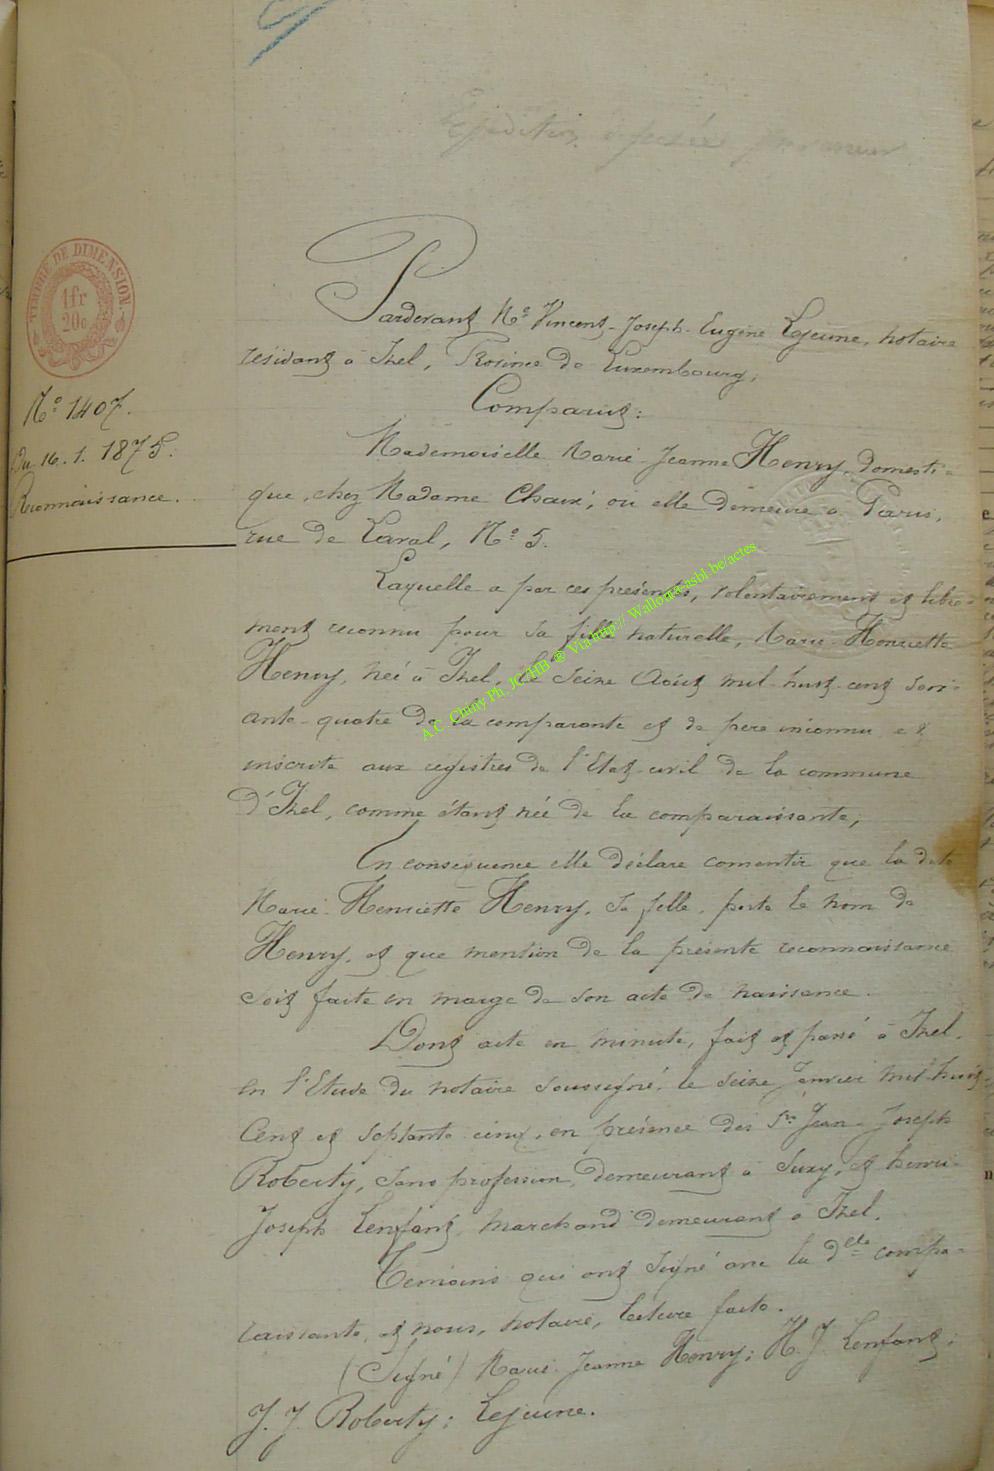 TIMBRE DE DIMENSION
1fr
20c
No 1407.
Du 16. 1. 1875.
Reconnaissance.
Pardevant Me Vincent-Joseph-Eugène Lejeune, notaire
résidant à Izel, Province de Luxembourg,
Comparut:
Mademoiselle Marie-Jeanne Henry, domesti-
que, chez Madame Chaix, où elle demeure à Paris,
rue de Laval, No 5.
Laquelle a par ces présentes, volontairement et libre-
ment reconnu pour sa fille naturelle, Marie-Henriette
Henry, née à Izel, le seize Août mil-huit-cent soix-
ante-quatre de la comparante et de père inconnu et
inscrite aux registres de l'Etat-civil de la commune
d'Izel, comme étant née de la comparaissante;
En conséquence elle déclare consentir que la dite
Marie-Henriette Henry, sa fille, porte le nom de
Henry, et que mention de la présente reconnaissance
soit faite en marge de son acte de naissance.
Dont acte en minute, fait et passé à Izel,
en l'Etude du notaire soussigné, le seize Janvier mil-huit-
cent et septante-cinq, en présence des Srs Jean-Joseph
Roberty, sans profession, demeurant à Suxy, et henri-
Joseph Lenfant, marchand demeurant à Izel.
Témoins qui ont signé avec la delle compa-
raissante, et nous, notaire, lecture faite.
(Signé) Marie Jeanne Henry; H. J. Lenfant;
J. J. Roberty; Lejeune.
A.C. Chiny Ph. JC HB ® Via http:// Wallonia-asbl-be/actes